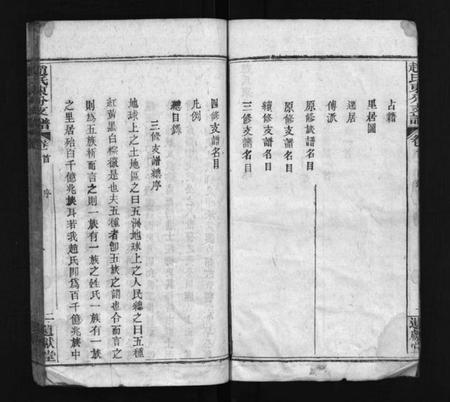 趙氏東分支譜
卷首
占籍
里居圖
遷居
傳派
原修族譜名目
原修支譜名目
續修支譜名目
三修支譜名目
四修支譜名目
凡例
總目錄
三修支譜總序
地球上之土地區之曰五洲地球上之人民總之曰五種
紅黃黑白棕徽是也夫五種者卽五族之謂也合而言之
則為五族析而言之則一族有一族之姓氏一族有一族
之里居殆百千億兆族耳若我趙氏卽爲百千億兆族中
趙氏東分支譜
卷首
序
一
追獻堂